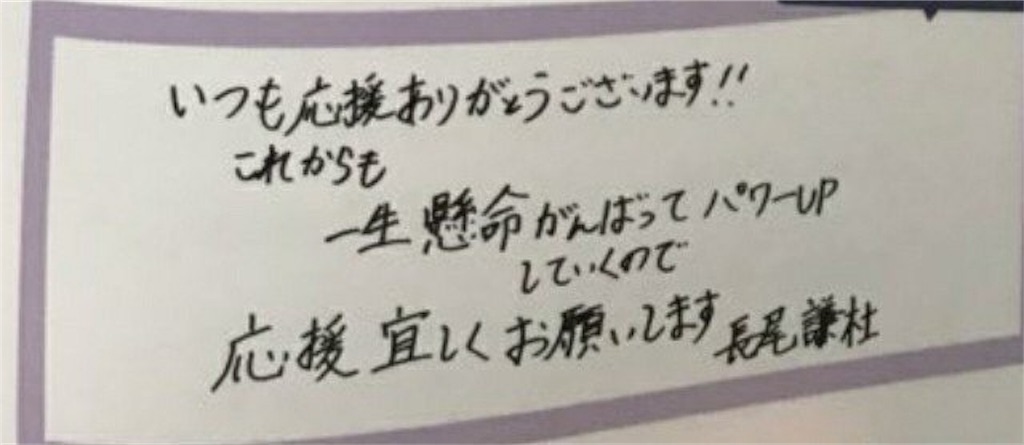 いつも応援ありがとうございます!!
これからも
一生懸命がんばってパワーUP
していくので
応援宜しくお願いします 長尾謙杜